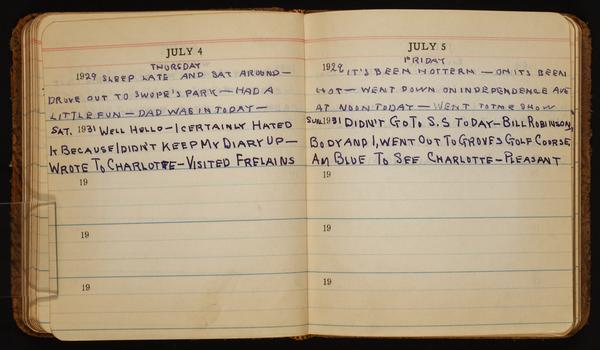 JULY 4
THURSDAY
1929 SLEEP LATE AND SAT AROUND—
DROVE OUT TO SWOPE'S PARK—HAD A
LITTLE FUN—DAD WAS IN TODAY—
SAT. 1931 WELL HELLO—I CERTAINLY HATED
IT BECAUSE I DIDN'T KEEP MY DIARY UP—
WROTE TO CHARLOTTE—VISITED FRELAINS
19
19
19
JULY 5
FRIDAY
1929 IT'S BEEN HOTTERN—ON ITS BEEN
HOT—WENT DOWN ON INDEPENDENCE AVE
AT NOON TODAY—WENT TO THE SHOW
SUN. 1931 DIDN'T GO TO S.S TODAY—BILL ROBINSON,
BODY AND I, WENT OUT TO GROVES GOLF COURSE
AM BLUE TO SEE CHARLOTTE—PLEASANT
19
19
19